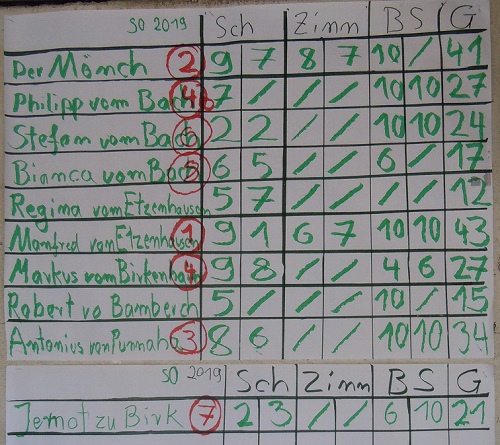 SO 2019 Sch Zimm BS G
Der Mönch 2 9 7 8 7 10 / 41
Philipp vom Bach 4 7 / / / 10 10 27
Stefan vom Bach 6 2 2 / / 10 10 24
Bianca vom Bach 5 6 5 / / 6 / 17
Regina vom Etzenhausen 5 7 / / / / 12
Manfred vom Etzenhausen 1 9 1 6 7 10 10 43
Markus vom Birkenhain 4 9 8 / / 4 6 27
Robert vo Bamberch 5 / / / 10 / 15
Antonius von Punnah 3 8 6 / / 10 10 34
SO 2019 Sch Zimm BS G
Jernot zu Birk 7 2 3 / / 6 10 21